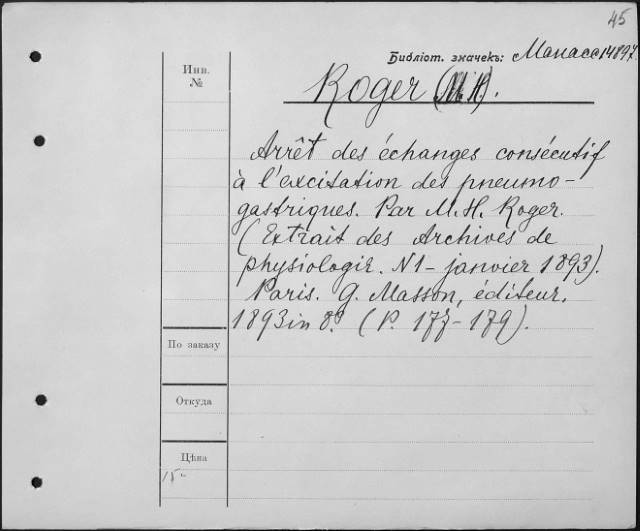 45
Библіот. значекъ: Манасс 14897.
Инв.
№
Roger (M. H).
Arrêt des échanges consécutif
à l'excitation des pneumo-
gastriques. Par M. H. Roger.
(Extrait des Archives de
physiologie. N1 - janvier 1893).
Paris. G. Masson, éditeur.
1893 in 8º. (P. 177-179).
По заказу
Откуда
Цѣна
15"